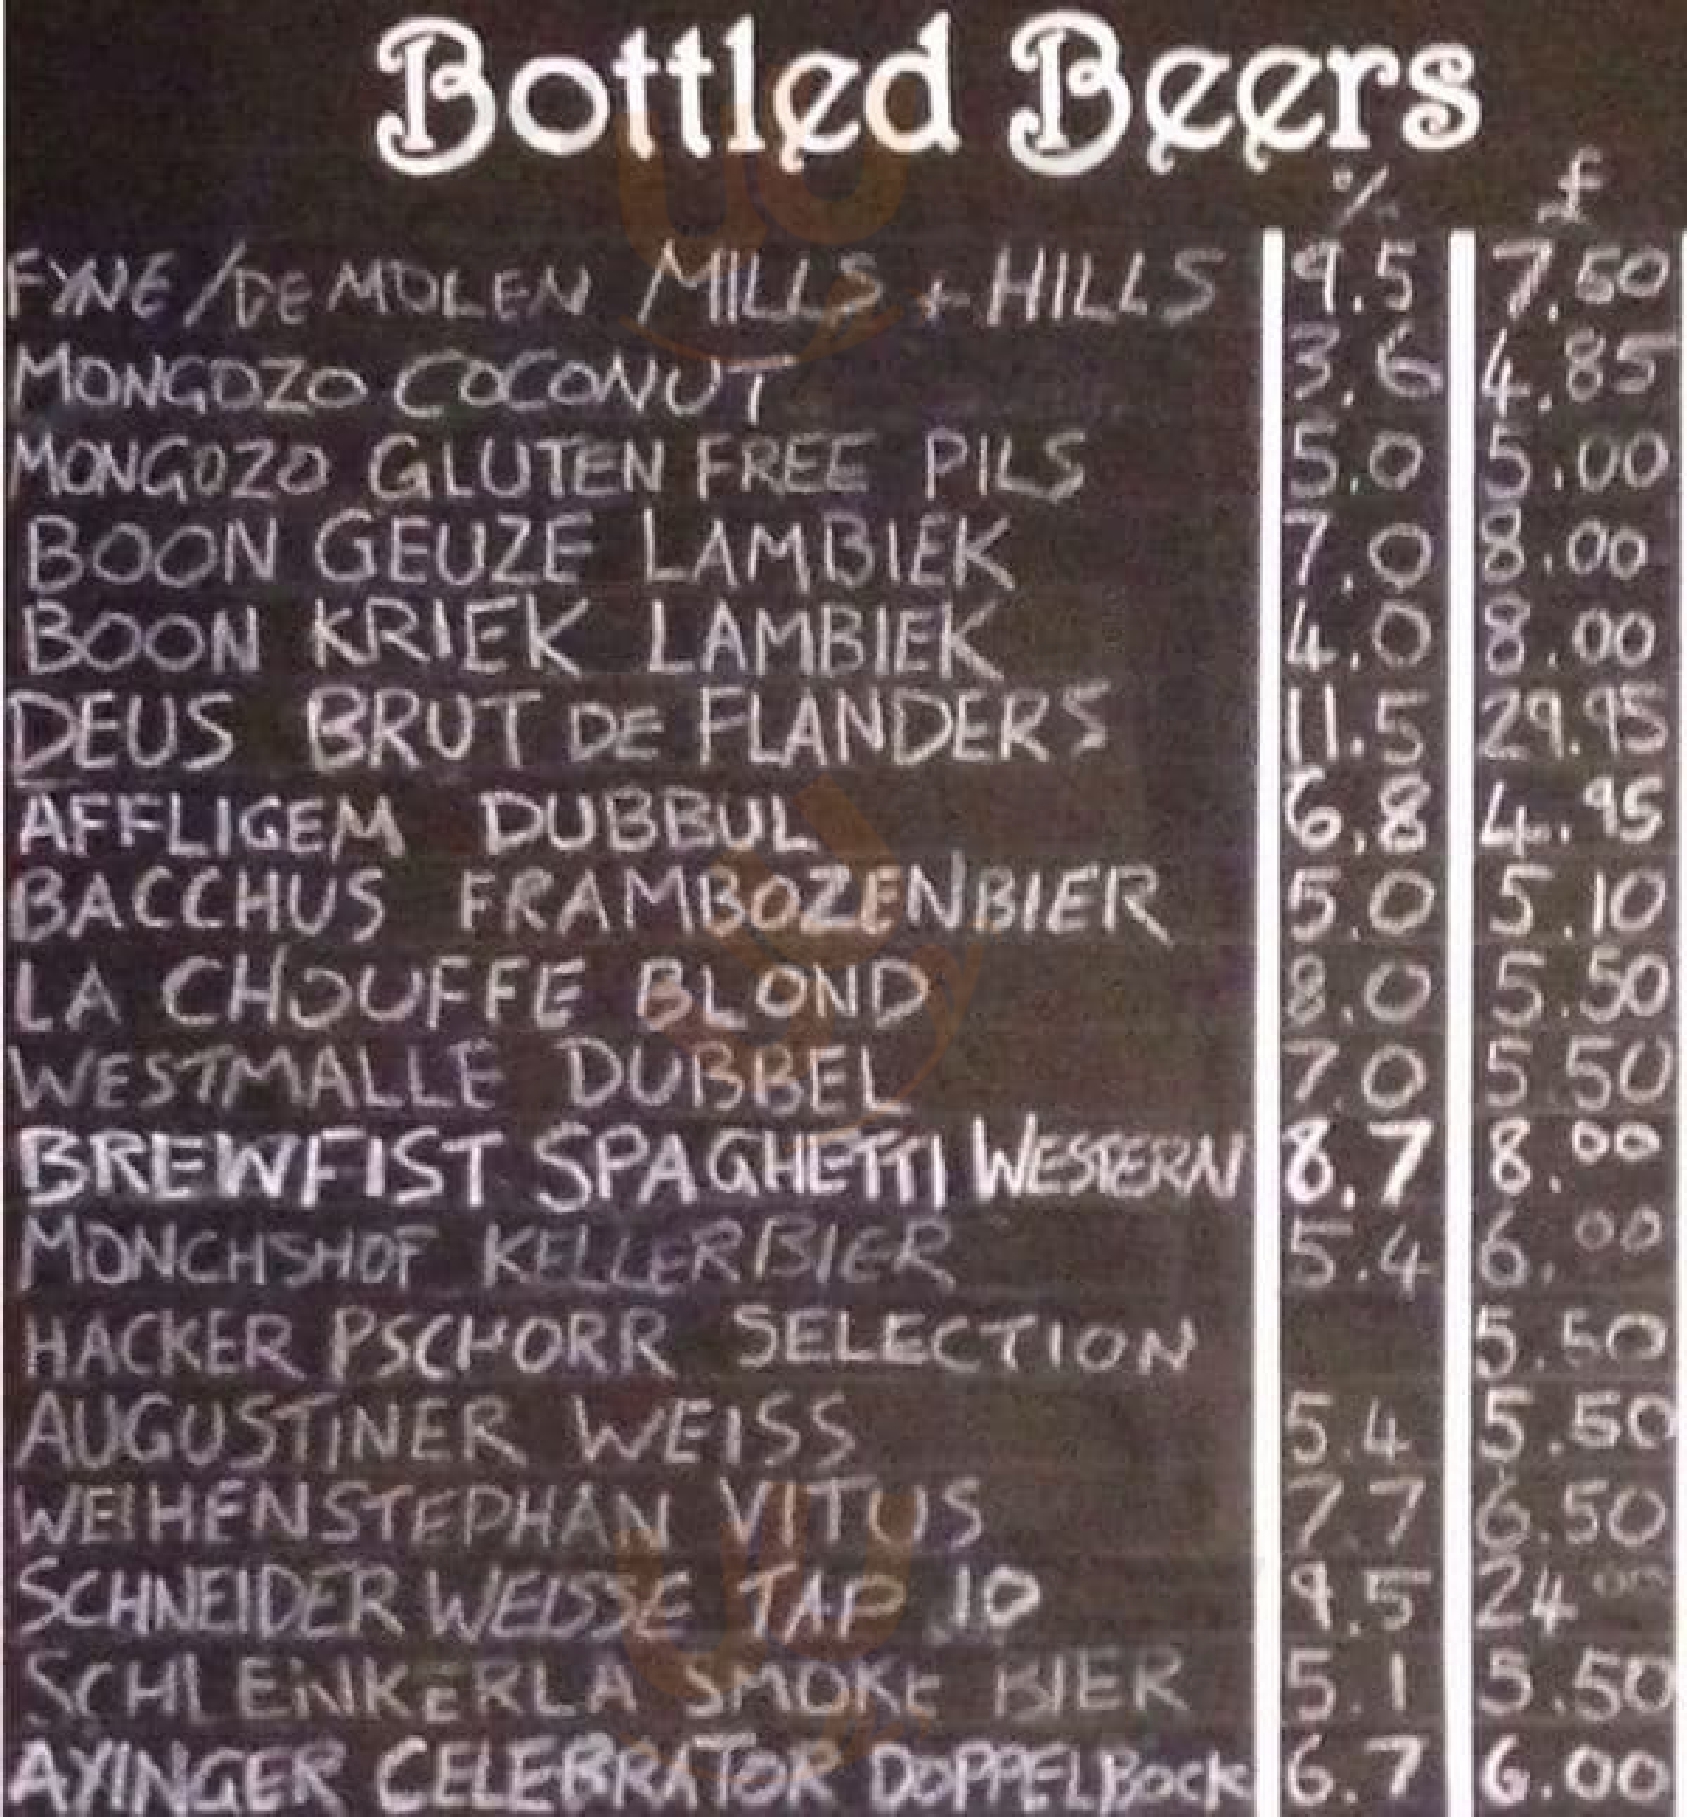 Bottled Beers
% £
FYNE/DE MOLEN MILLS + HILLS 9.5 7.50
MONGOZO COCONUT 3.6 4.85
MONGOZO GLUTEN FREE PILS 5.0 5.00
BOON GEUZE LAMBIEK 7.0 8.00
BOON KRIEK LAMBIEK 4.0 8.00
DEUS BRUT DE FLANDERS 11.5 29.95
AFFLIGEM DUBBUL 6.8 4.95
BACCHUS FRAMBOZENBIER 5.0 5.10
LA CHOUFFE BLOND 8.0 5.50
WESTMALLE DUBBEL 7.0 5.50
BREWFIST SPAGHETTI WESTERN 8.7 8.00
MONCHSHOF KELLERBIER 5.4 6.00
HACKER PSCHORR SELECTION 5.50
AUGUSTINER WEISS 5.4 5.50
WEIHENSTEPHAN VITUS 7.7 6.50
SCHNEIDER WEISSE TAP 10 9.5 24.00
SCHLENKERLA SMOKE BIER 5.1 5.50
AYINGER CELEBRATOR DOPPELBOCK 6.7 6.00